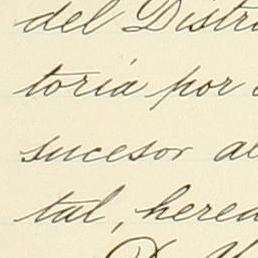 del Distri
toria por
sucesor al
tal, hered
D.